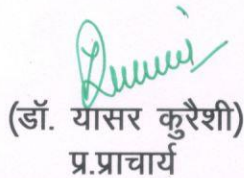 (डॉ. यासर कुरैशी)
प्र.प्राचार्य